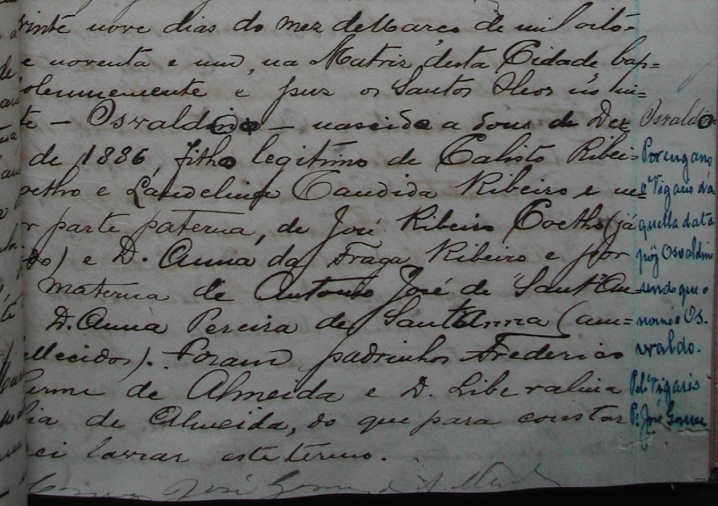 vinte nove dias do mez de Março de mil oito-
e noventa e um, na Matriz desta Cidade bap=
solemnemente e puz os Santos Oleos in=
te - Osvaldino - nascido a dous de Dez
de 1886, filho legitimo de Calisto Ribei=
Coelho e Landelina Candida Ribeiro e ne=
r parte paterna, de José Ribeiro Coelho (já
do) e D. Anna da Fraga Ribeiro e por
materna de Antonio José de Sant'An=
D. Anna Pereira de Sant'Anna (am=
llecidos). Foram padrinhos Frederico
de Almeida e D. Liberalina
de Almeida, do que para constar
lavrar este termo.
José Gomes
Osvaldo
Por engano
o Vigario d'a
quella data
pôz Osvaldin
sendo que o
nome é Os-
valdo.
Pel Vigario
Pe. José Gomes